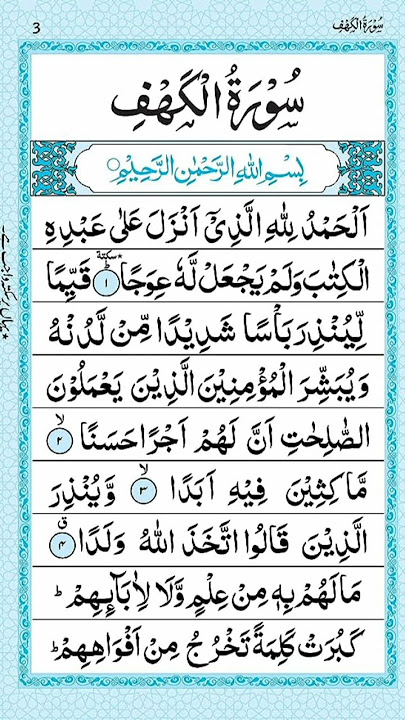 3
سُوْرَةُ الْكَهْفِ
سُوْرَةُ الْكَهْفِ
بِسْمِ اللهِ الرَّحْمٰنِ الرَّحِيْمِ
اَلْحَمْدُ لِلّٰهِ الَّذِيْٓ اَنْزَلَ عَلٰى عَبْدِهِ
الْكِتٰبَ وَلَمْ يَجْعَلْ لَّهٗ عِوَجًا ۜ ۱ قَيِّمًا
لِّيُنْذِرَ بَاْسًا شَدِيْدًا مِّنْ لَّدُنْهُ
وَيُبَشِّرَ الْمُؤْمِنِيْنَ الَّذِيْنَ يَعْمَلُوْنَ
الصّٰلِحٰتِ اَنَّ لَهُمْ اَجْرًا حَسَنًا ۙ ۲
مَّاكِثِيْنَ فِيْهِ اَبَدًا ۙ ۳ وَّيُنْذِرَ
الَّذِيْنَ قَالُوا اتَّخَذَ اللّٰهُ وَلَدًا ق ۴
مَا لَهُمْ بِهٖ مِنْ عِلْمٍ وَّلَا لِاٰبَآئِهِمْ ؕ
كَبُرَتْ كَلِمَةً تَخْرُجُ مِنْ اَفْوَاهِهِمْ ؕ